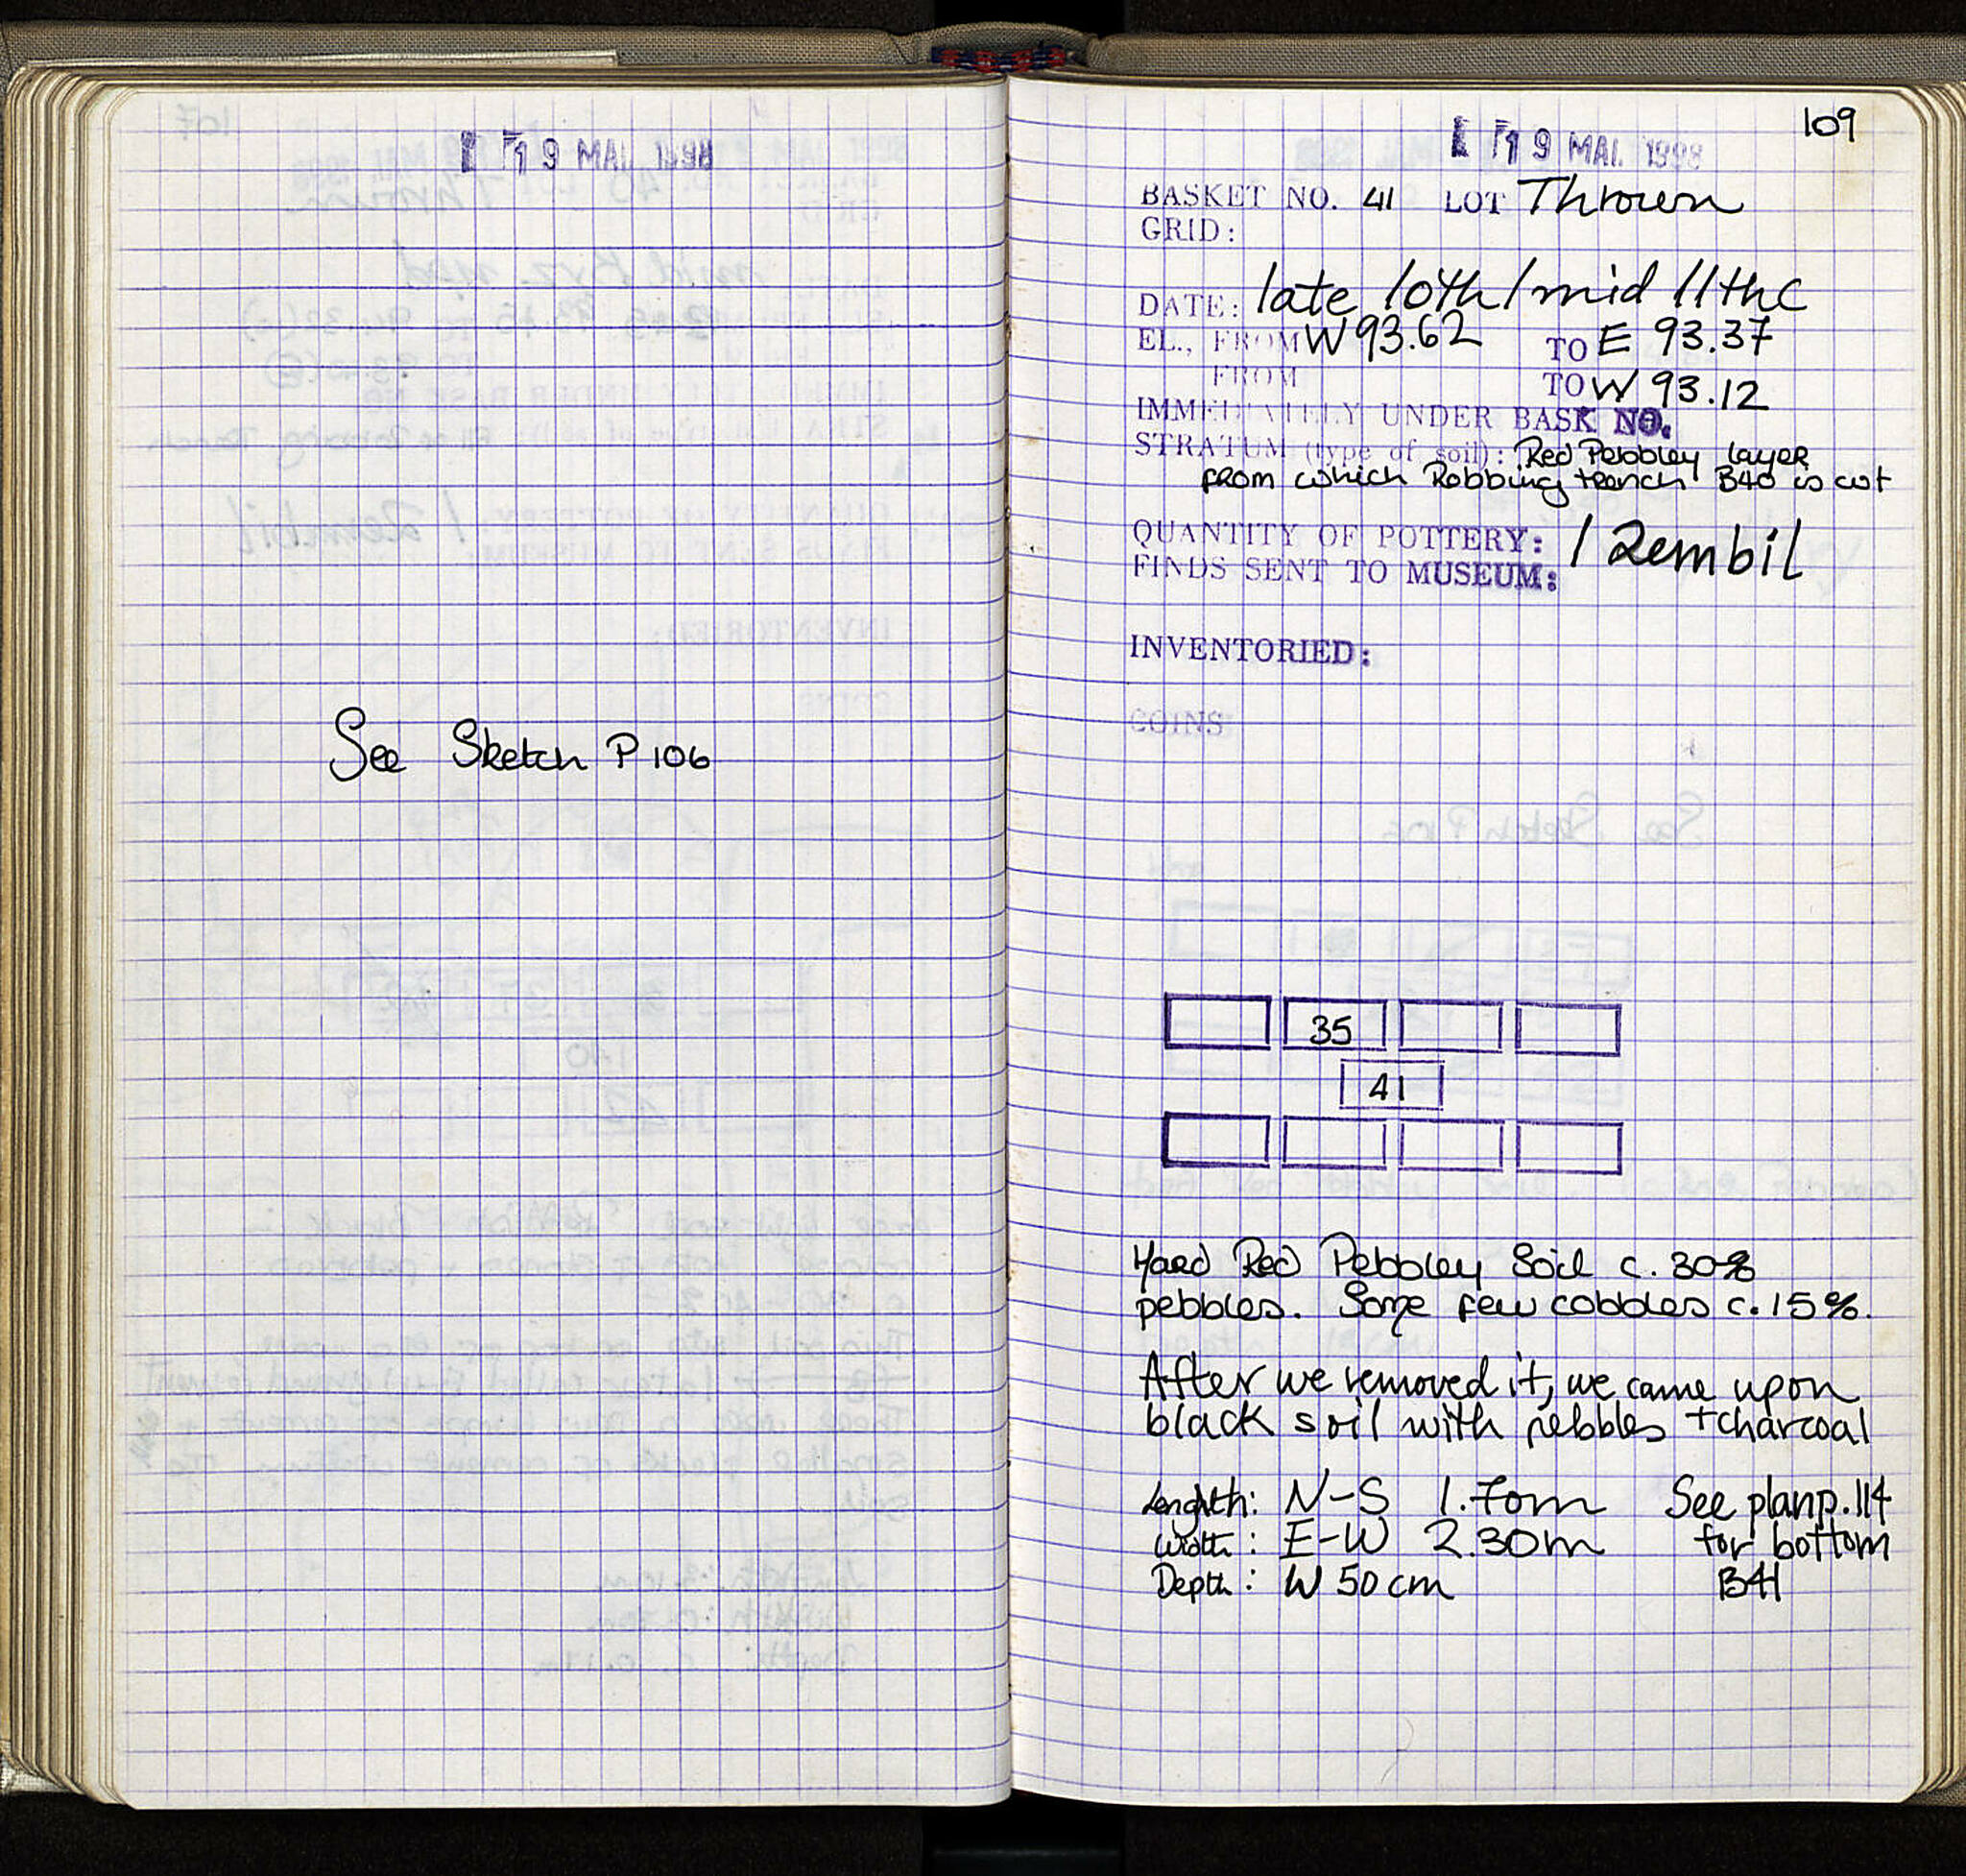 19 MAI 1998
See Sketch P 106
109
19 MAI 1998
BASKET NO. 41 LOT Thrown
GRID:
DATE: late 10th/mid 11th C
EL., FROM W 93.62 TO E 93.37
FROM TO W 93.12
IMMEDIATELY UNDER BASK NO.
STRATUM (type of soil): Red Pebbley layer
from which Robbing trench B40 is cut
QUANTITY OF POTTERY: 1 Zembil
FINDS SENT TO MUSEUM:
INVENTORIED:
COINS
35
41
Hard Red Pebbley Soil c. 30%
pebbles. Some few cobbles c. 15%.
After we removed it, we came upon
black soil with pebbles + charcoal
Length: N-S 1.70m See plan p. 114
Width: E-W 2.30m for bottom
Depth: W 50 cm B41